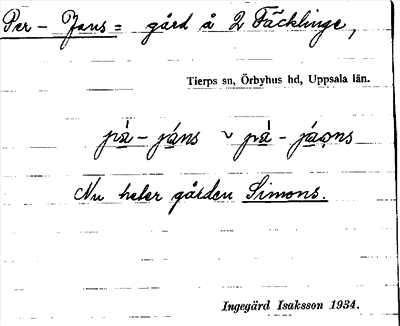 Per - Jans = gård å 2 Fäcklinge,
Tierps sn, Örbyhus hd, Uppsala län.
pà - jáns ~ pà - jáǫns
Nu heter gården Simons.
Ingegärd Isaksson 1934.